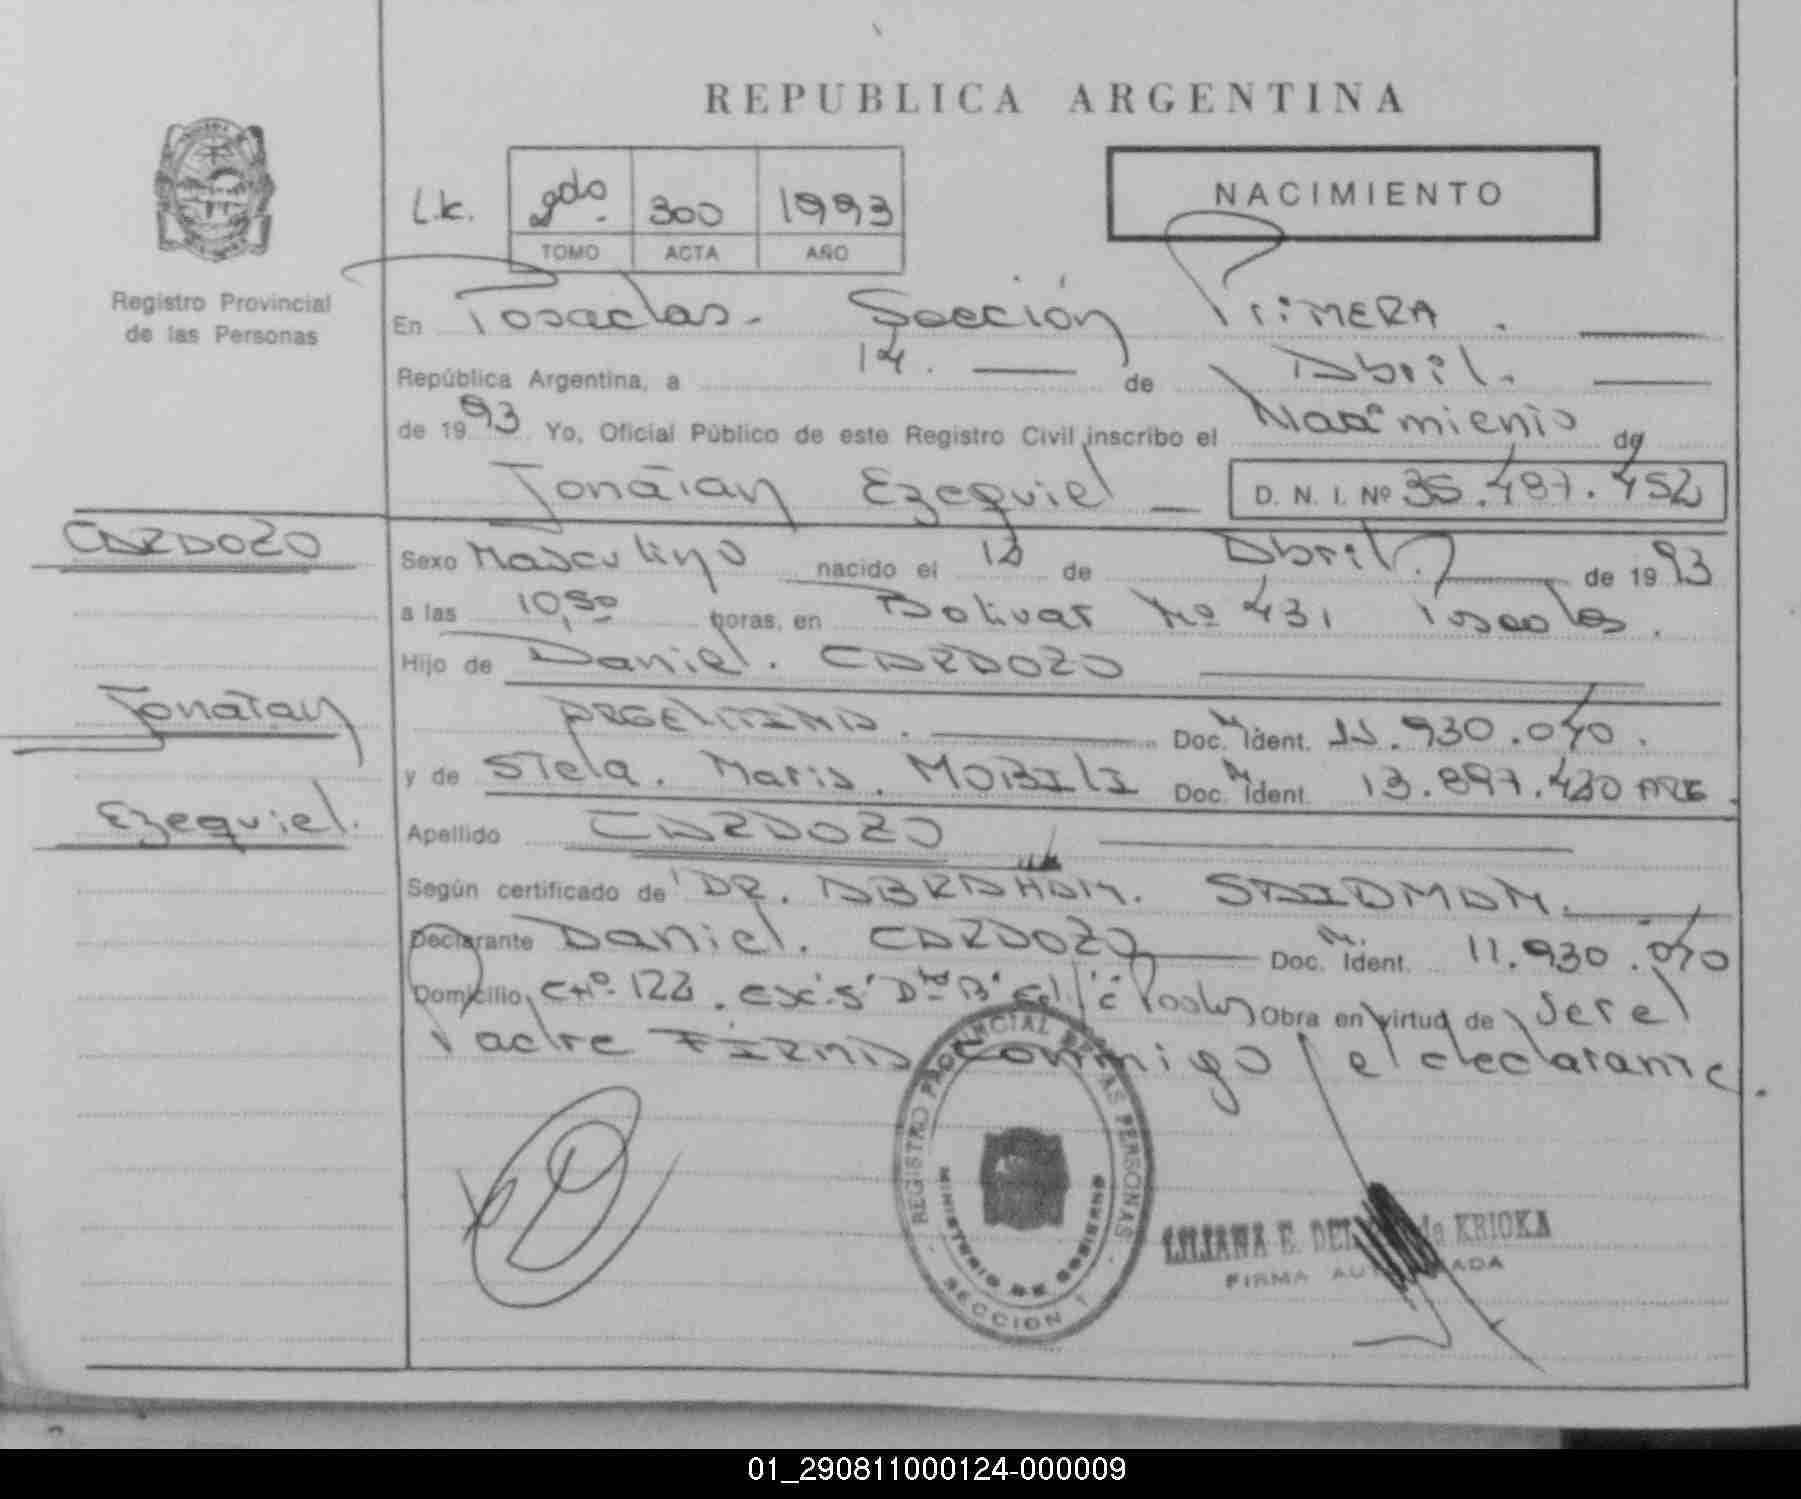 REPUBLICA ARGENTINA
L.c. 2do. 300 1993
TOMO ACTA AÑO
NACIMIENTO
Registro Provincial
de las Personas
En Posadas. Sección PriMERA.
República Argentina, a 14. de Abril.
de 1993 Yo, Oficial Público de este Registro Civil inscribo el Nacimiento de
Jonatan Ezequiel D. N. I. Nº 35.487.452
CARDOZO
Jonatan
Ezequiel.
Sexo Masculino nacido el 12 de Abril. de 1993
a las 10,50 horas, en Bolivar Nº 431 Posadas.
Hijo de Daniel. CARDOZO
ARGENTINO. Doc. Ident. 11.930.040.
y de Stela. Maris. MOBILI Doc. Ident. 13.897.430 ARG.
Apellido CARDOZO
Según certificado de DR. ABRAHAM. SAIDMAN.
Declarante Daniel. CARDOZO Doc. Ident. 11.930.040
Domicilio CHº 122. Obra en virtud de ser el
Padre FIRMA conmigo el declarante.
REGISTRO PROVINCIAL DE LAS PERSONAS
MINISTERIO DE GOBIERNO
SECCION 1
LILIANA E. de KRIOKA
FIRMA AUTORIZADA
01_290811000124-000009